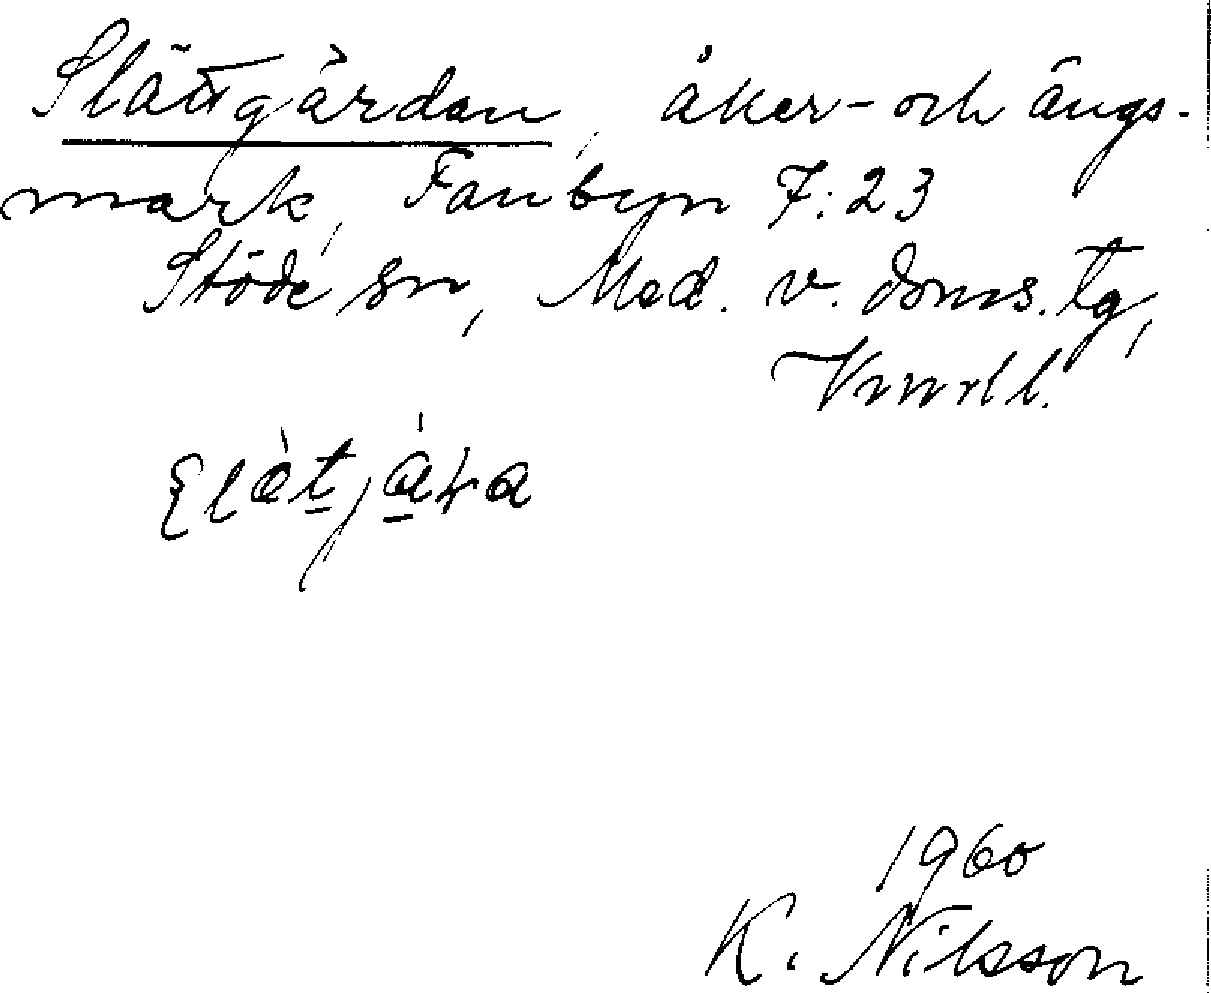 Slättgårdan, åker- och ängs-
mark, Fanbyn 7:23
Stöde sn, Med. v. doms. tg,
Vnrll.
1960
K. Nilsson